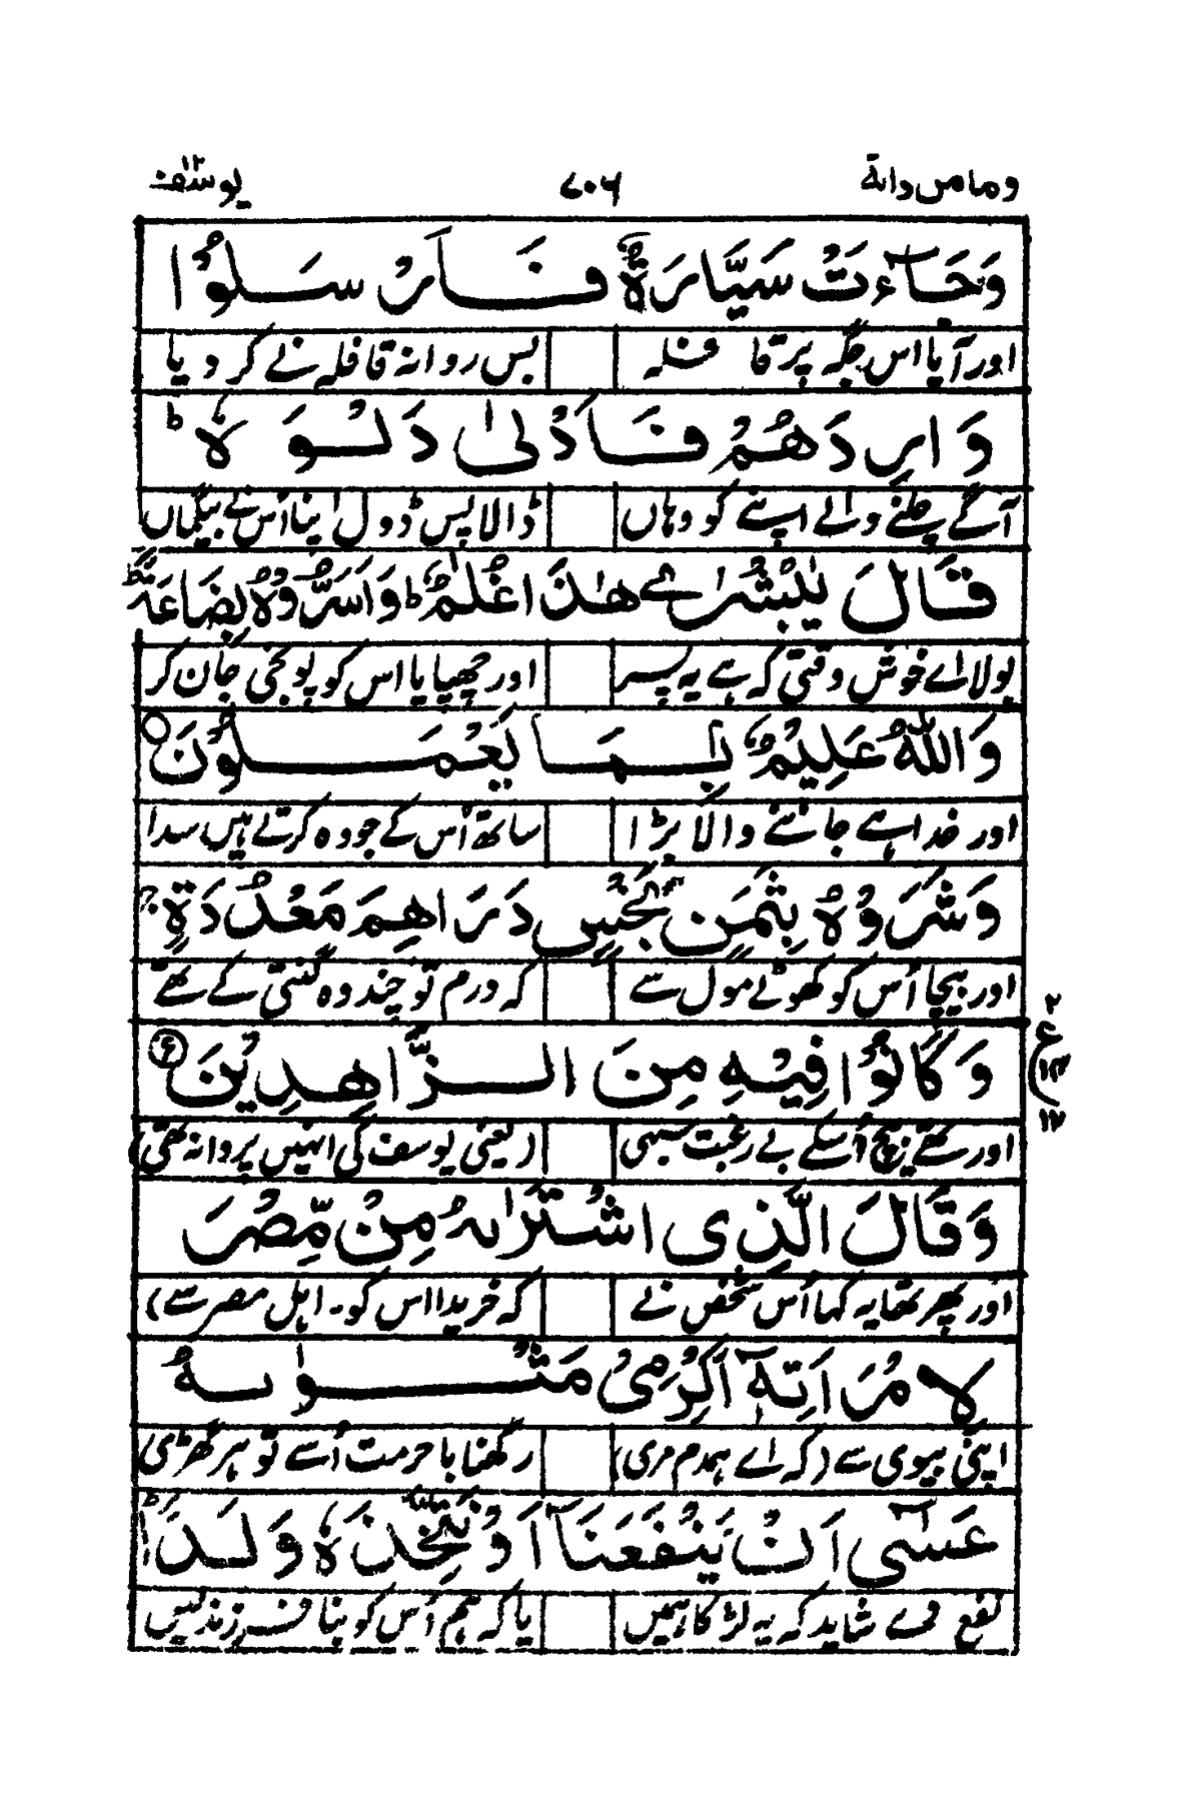 وما من دابة ۷۰۶ یوسف ۱۲
وَجَآءَتْ سَيَّارَةٌ فَاَرْسَلُوْا
اور آیا اس جگہ پر قافلہ پس روانہ قافلہ نے کر دیا
وَارِدَهُمْ فَاَدْلٰى دَلْوَهٗ ؕ
آگے چلنے والے اپنے کو وہاں ڈالا پس ڈول اپنا اُس نے بیگماں
قَالَ يٰبُشْرٰى هٰذَا غُلٰمٌ ؕ وَاَسَرُّوْهُ بِضَاعَةً ؕ
بولا اے خوش وقتی کہ ہے یہ پسر اور چھپایا اس کو پونجی جان کر
وَاللّٰهُ عَلِيْمٌۢ بِمَا يَعْمَلُوْنَ ○
اور خدا ہے جاننے والا بڑا ساتھ اُس کے جو وہ کرتے ہیں سدا
وَشَرَوْهُ بِثَمَنٍۢ بَخْسٍ دَرَاهِمَ مَعْدُوْدَةٍ ۚ
اور بیچا اُس کو کھوٹے مول سے کہ درم تو چند وہ گنتی کے تھے
وَكَانُوْا فِيْهِ مِنَ الزَّاهِدِيْنَ
۲
ع
۱۲
۱۲
اور تھے بیچ اُسکے بے رغبت سبھی (یعنی یوسف کی انہیں پروا نہ تھی)
وَقَالَ الَّذِى اشْتَرٰىهُ مِنْ مِّصْرَ
اور پھر تھا یہ کہا اُس شخص نے کہ خریدا اس کو۔ اہل مصر سے)
لِامْرَاَتِهٖۤ اَكْرِمِىْ مَثْوٰىهُ
اپنی بیوی سے (کہ اے ہمدم مری) رکھنا با حرمت اُسے تو ہر گھڑی
عَسٰٓى اَنْ يَّنْفَعَنَاۤ اَوْ نَتَّخِذَهٗ وَلَدًا ؕ
نفع دے شاید کہ یہ لڑکا ہمیں یا کہ ہم اُس کو بنا فرزند لیں